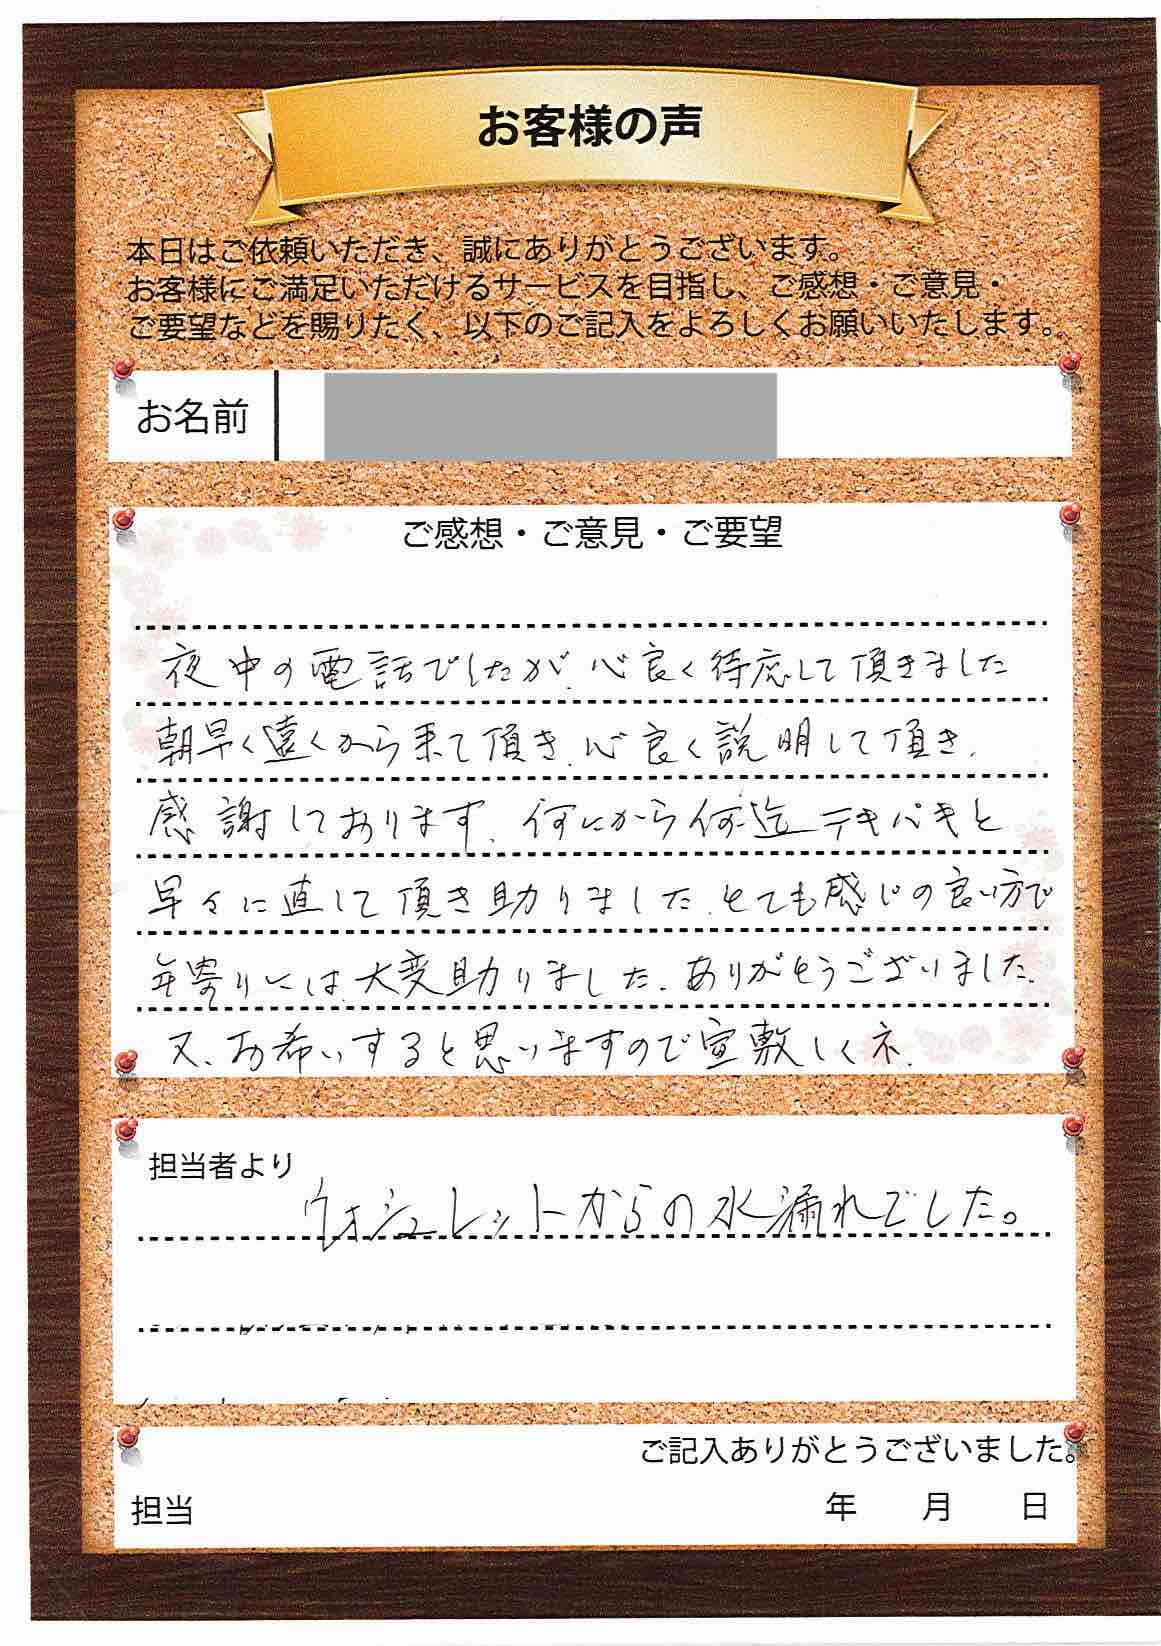 お客様の声
本日はご依頼いただき、誠にありがとうございます。
お客様にご満足いただけるサービスを目指し、ご感想・ご意見・
ご要望などを賜りたく、以下のご記入をよろしくお願いいたします。
お名前
ご感想・ご意見・ご要望
夜中の電話でしたが、心良く待応して頂きました
朝早く遠くから来て頂き、心良く説明して頂き、
感謝しております、何にから何迄テキパキと
早々に直して頂き助りました、とても感じの良い方で
年寄りには、大変助りました、ありがとうございました、
又、お希いすると思いますので宣敷しくネ、
担当者より
ウォシュレットからの水漏れでした。
ご記入ありがとうございました。
担当 年 月 日